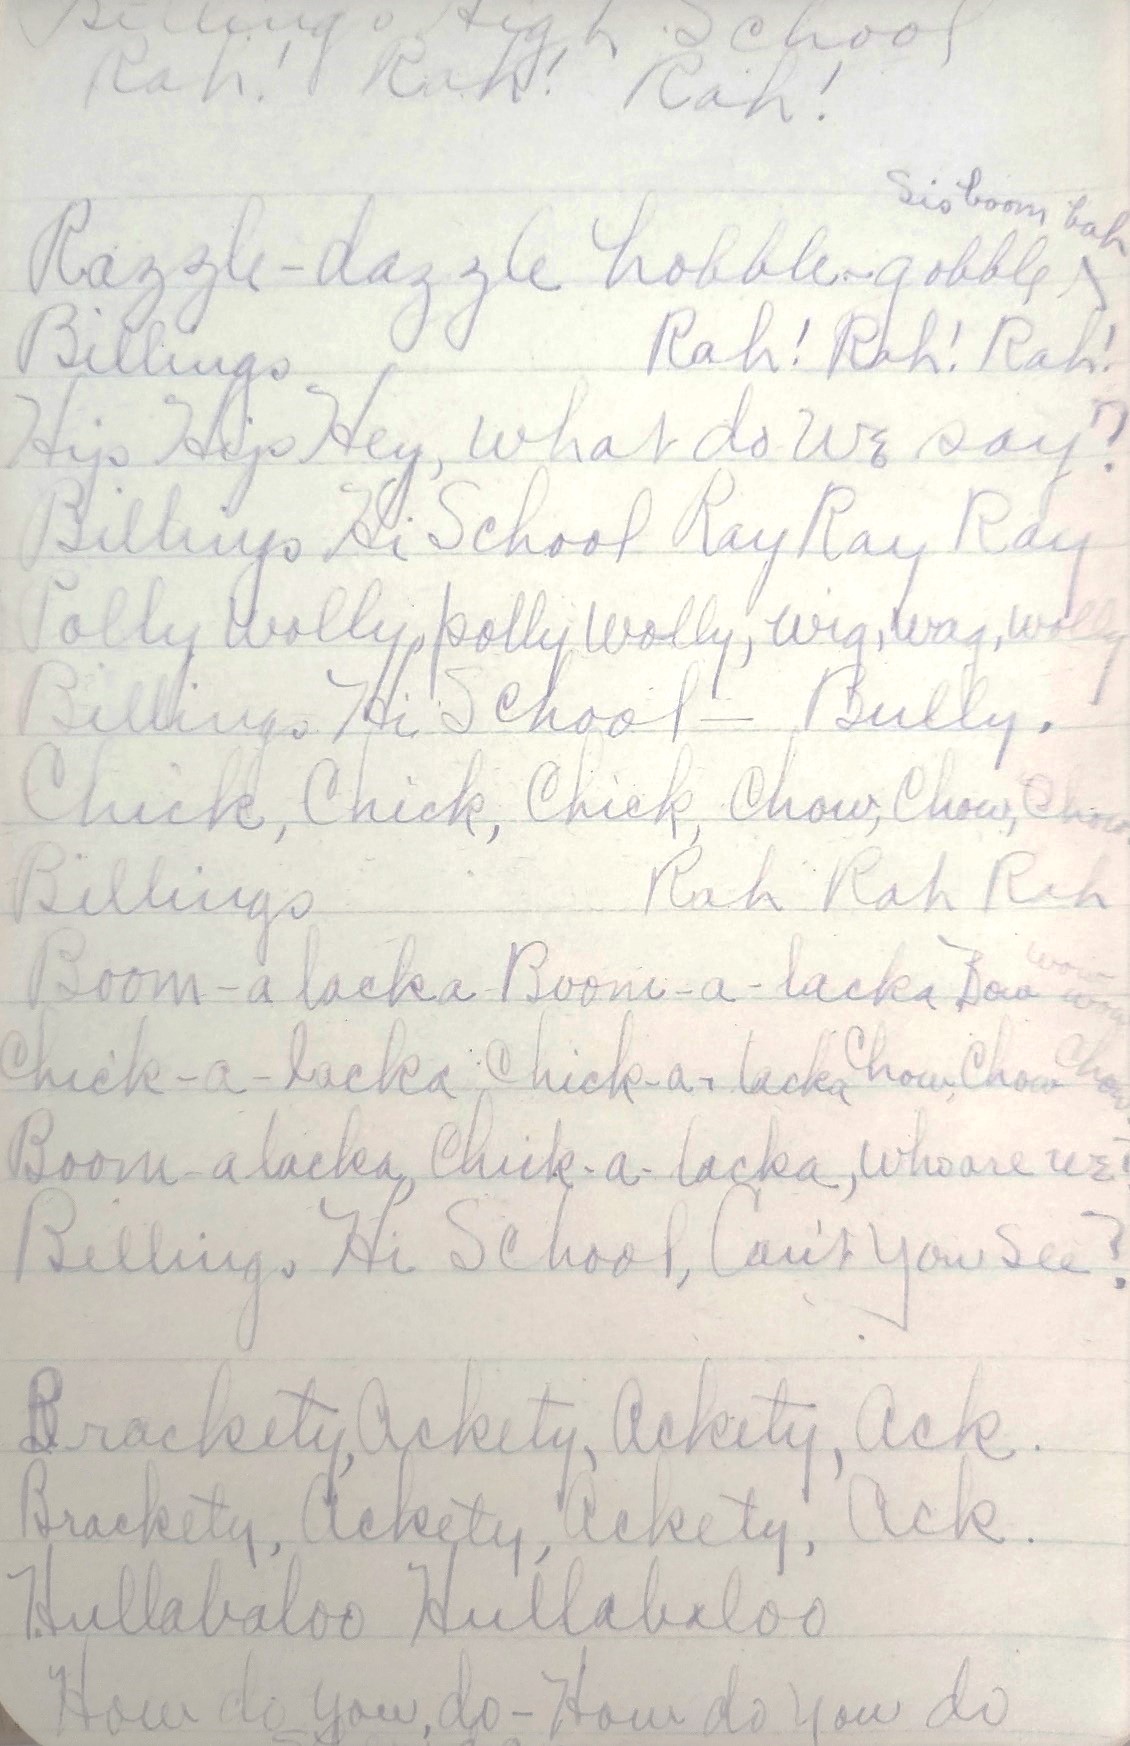 Billings High School
Rah! Rah! Rah!
Sis boom bah
Razzle-dazzle hobble-gobble
Billings Rah! Rah! Rah!
Hip Hip Hey, what do we say?
Billings Hi School Ray Ray Ray
Polly wolly, polly wolly, wig, wag, wolly
Billings Hi School - Bully.
Chick, Chick, Chick, Chow, Chow, Chow
Billings Rah Rah Rah
Boom-a lacka Boom-a-lacka Bow wow wow
Chick-a-lacka Chick-a-lacka Chow, Chow Chow
Boom-a lacka, Chick-a-lacka, who are we?
Billings Hi School, Can't you see?
Brackety, Ackety, Ackety, Ack.
Brackety, Ackety, Ackety, Ack.
Hullabaloo Hullabaloo
How do you, do - How do you do